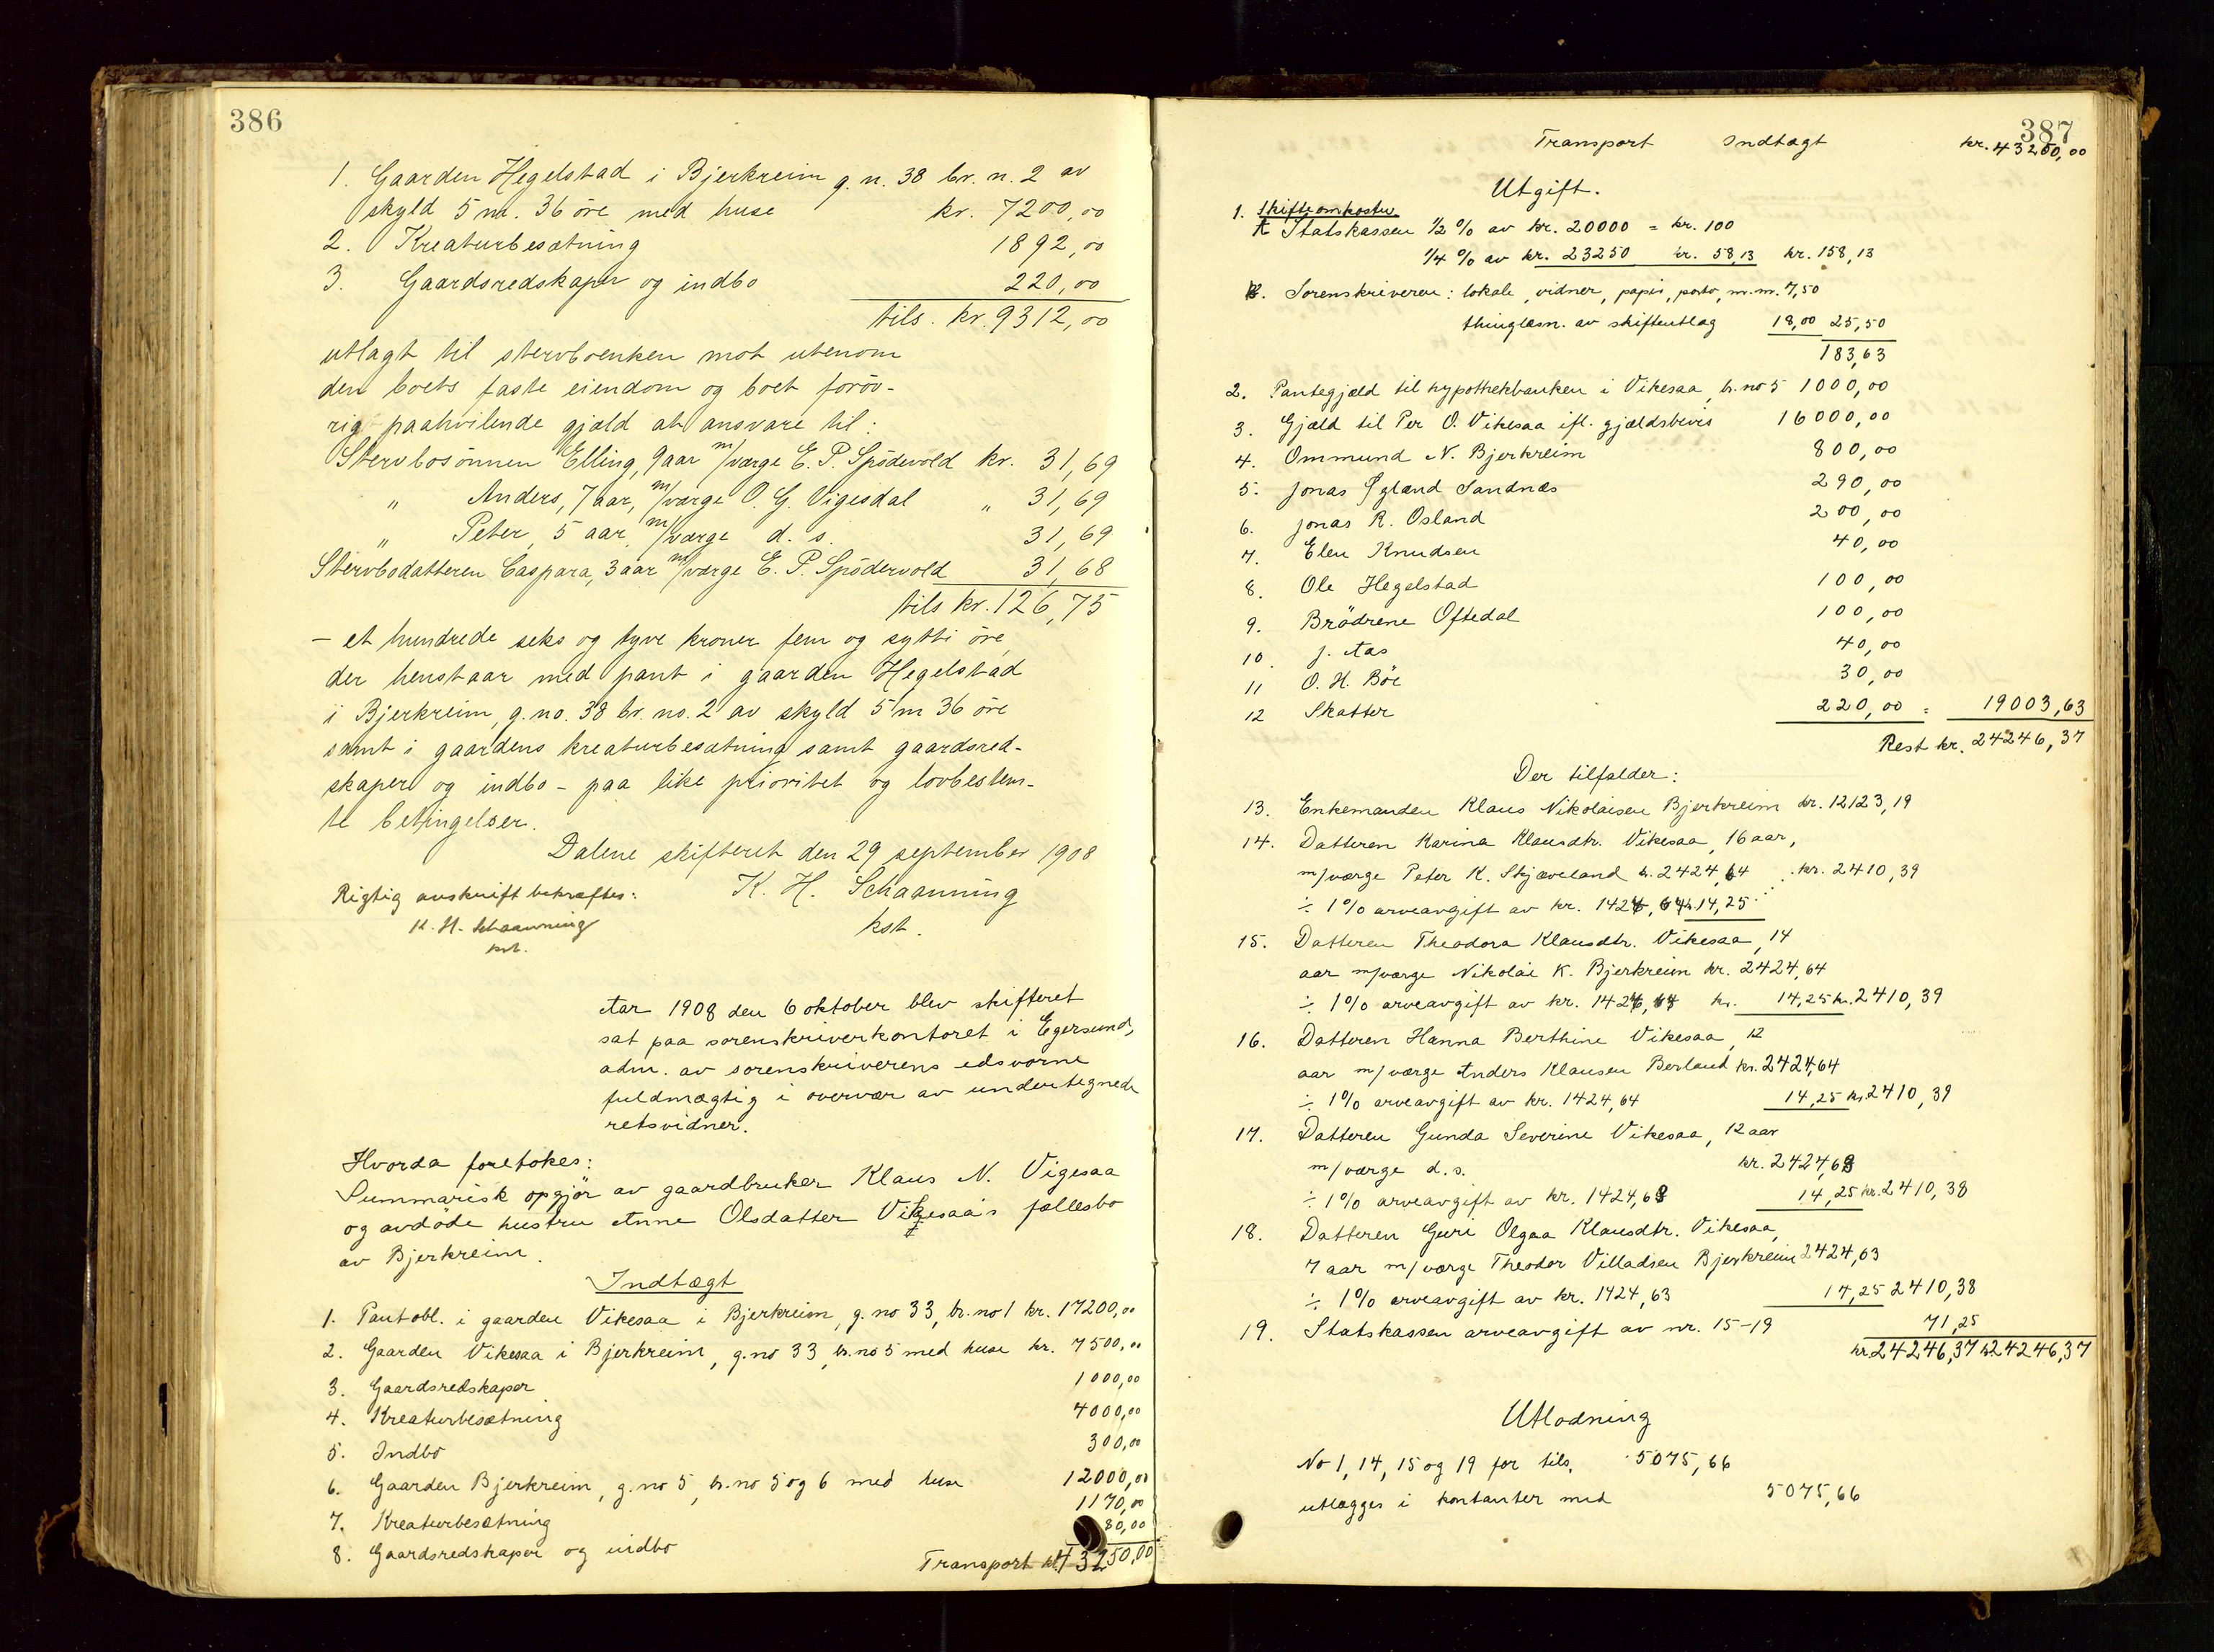 386
1. Gaarden Hegelstad i Bjerkreim g. n. 38 br. n. 2 av
skyld 5 m. 36 öre med huse kr. 7200,00
2. Kreaturbesætning 1892,00
3. Gaardsredskaper og indbo 220,00
tils. kr. 9312,00
utlagt til stervboenken mot utenom
den boets faste eiendom og boet foröv-
rig paahvilende gjæld at ansvare til:
Stervbosönnen Elling, 9 aar m/værge E. P. Spödervold kr. 31,69
" Anders, 7 aar, m/værge O. G. Vigesdal " 31,69
" Peter, 5 aar, m/værge d. s. 31,69
Stervbodatteren Caspara, 3 aar m/værge E. P. Spödervold 31,68
tils kr. 126,75
- et hundrede seks og tyve kroner fem og sytti öre,
der henstaar med pant i gaarden Hegelstad
i Bjerkreim, g. no. 38 br. no. 2 av skyld 5 m 36 öre
samt i gaardens kreaturbesætning samt gaardsred-
skaper og indbo - paa like prioritet og lovbestem-
te betingelser.
Dalene skifteret den 29 september 1908
K. H. Schaanning
kst.
Rigtig avskrift bekræftes:
K. H. Schaanning
kst.
Aar 1908 den 6 oktober blev skifteret
sat paa sorenskriverkontoret i Egersund,
adm. av sorenskriverens edsvorne
fuldmægtig i overvær av undertegnede
retsvidner.
Hvorda foretokes:
Summarisk opgjör av gaardbruker Klaus N. Vigesaa
og avdöde hustru Anne Olsdatter Vikesaa's fællesbo
av Bjerkreim.
Indtægt
1. Pantobl. i gaarden Vikesaa i Bjerkreim, g. no 33, br. no 1 kr. 17200,00
2. Gaarden Vikesaa i Bjerkreim, g. no 33, br. no 5 med huse kr. 7500,00
3. Gaardsredskaper 1000,00
4. Kreaturbesætning 4000,00
5. Indbo 300,00
6. Gaarden Bjerkreim, g. no 5, br. no 5 og 6 med huse 12000,00
7. Kreaturbesætning 1170,00
8. Gaardsredskaper og indbo 80,00
Transport kr. 43250,00
387
Transport Indtægt kr. 43250,00
Utgift.
1. Skifteomkostn.
A Statskassen 1/2 % av kr. 20000 = kr. 100
1/4 % av kr. 23250 kr. 58,13 kr. 158,13
B. Sorenskriveren: lokale, vidner, papir, porto, m. m. 7,50
thinglæsn. av skifteutlæg 18,00 25,50
183,63
2. Pantegjæld til hypothekbanken i Vikesaa, br. no 5 1000,00
3. Gjæld til Per O. Vikesaa ifl. gjældsbevis 16000,00
4. Ommund N. Bjerkreim 800,00
5. Jonas Øgland Sandnæs 290,00
6. Jonas R. Osland 200,00
7. Elen Knudsen 40,00
8. Ole Hegelstad 100,00
9. Brödrene Oftedal 100,00
10. J. Aas 40,00
11 O. H. Böe 30,00
12 Skatter 220,00 = 19003,63
Rest kr. 24246,37
Der tilfalder:
13. Enkemanden Klaus Nikolaisen Bjerkreim kr. 12123,19
14. Datteren Karina Klausdtr. Vikesaa, 16 aar,
m/værge Peter K. Skjæveland kr. 2424,64 kr. 2410,39
÷ 1% arveavgift av kr. 1424,64 kr. 14,25
15. Datteren Theodora Klausdtr. Vikesaa, 14
aar m/værge Nikolai K. Bjerkreim kr. 2424,64
÷ 1% arveavgift av kr. 1424,64 kr. 14,25 kr. 2410,39
16. Datteren Hanna Berthine Vikesaa, 12
aar m/værge Anders Klausen Berland kr. 2424,64
÷ 1% arveavgift av kr. 1424,64 14,25 kr. 2410,39
17. Datteren Gunda Severine Vikesaa, 12 aar
m/værge d. s. kr. 2424,63
÷ 1% arveavgift av kr. 1424,63 14,25 kr. 2410,38
18. Datteren Guri Olgaa Klausdtr. Vikesaa,
7 aar m/værge Theodor Villadsen Bjerkreim 2424,63
÷ 1% arveavgift av kr. 1424,63 14,25 2410,38
19. Statskassen arveavgift av nr. 15-19 71,25
kr. 24246,37 kr. 24246,37
Utlodning
No 1, 14, 15 og 19 for tils. 5075,66
utlægges i kontanter med 5075,66